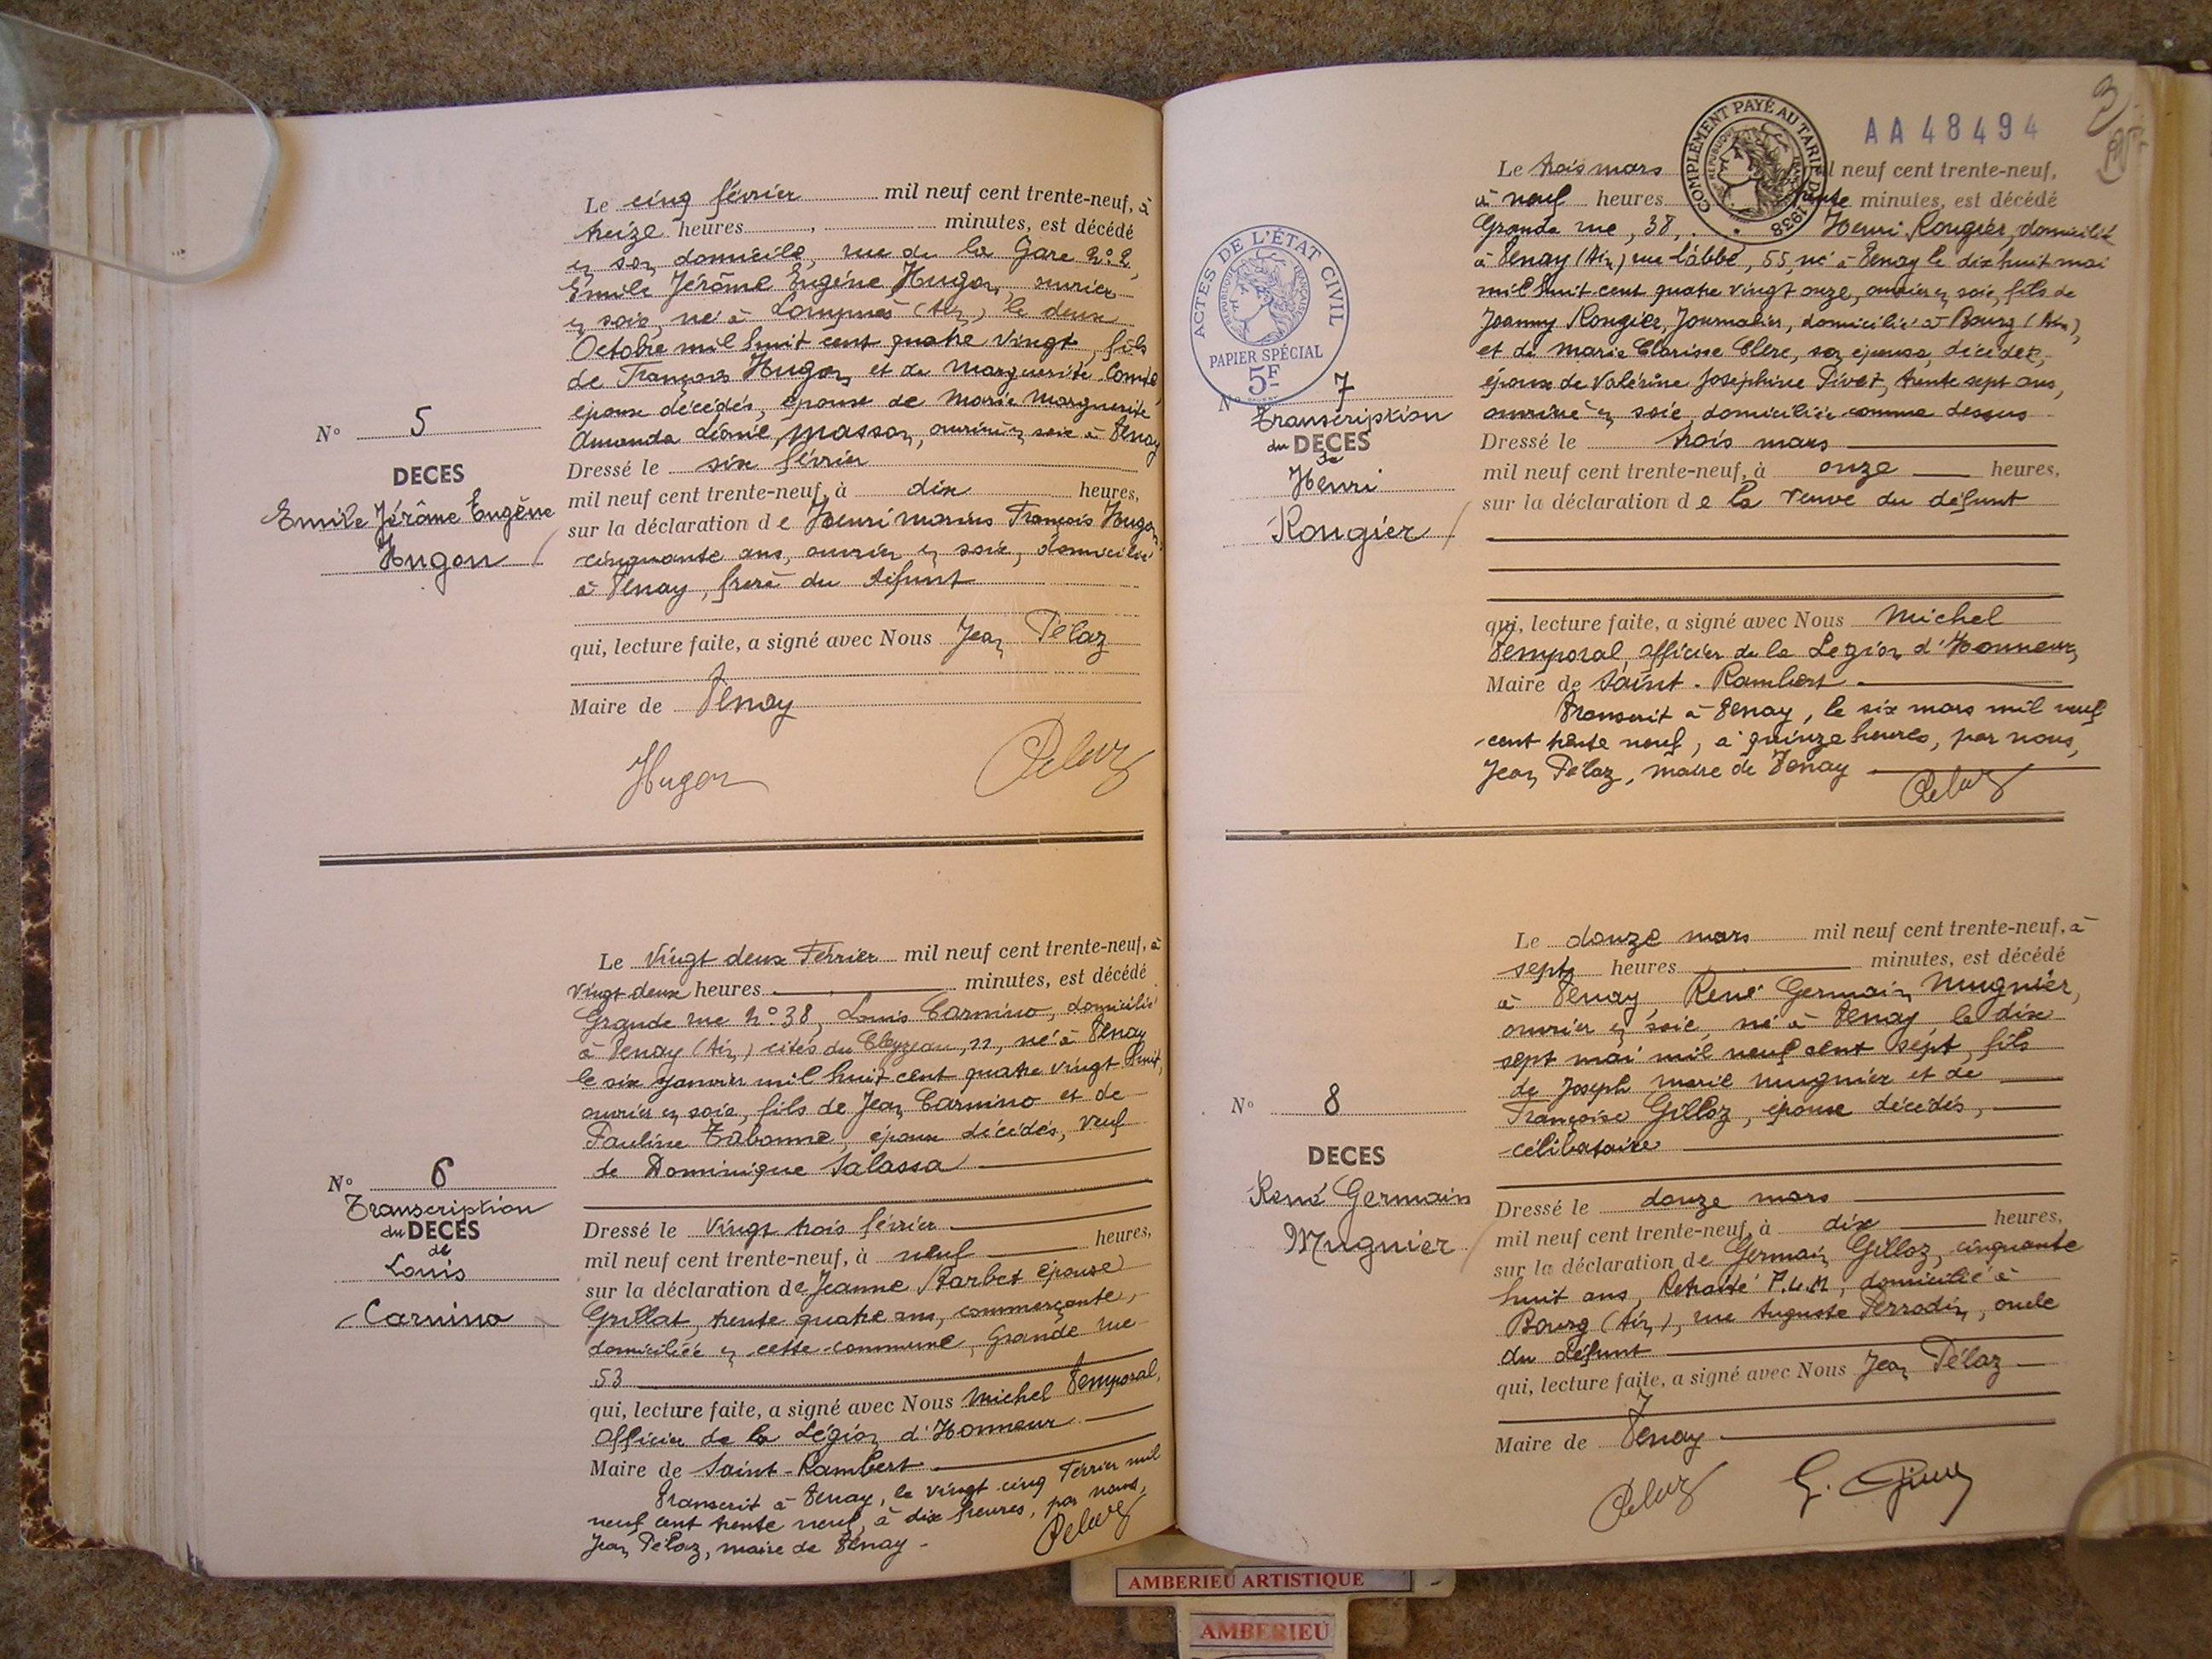 Le cinq février mil neuf cent trente-neuf, à
treize heures, minutes, est décédé
en son domicile, rue de la Gare n° 2,
Emile Jérôme Eugène Hugon, ouvrier
en soie, né à (Ain) le deux
Octobre mil huit cent quatre vingt, fils
de François Hugon et de Marguerite Comte
époux décédés, époux de Marie Marguerite
Amanda Léonie Masson, ouvrière en soie à Tenay
N° 5
DECES
Emile Jérôme Eugène
Hugon
Dressé le six février
mil neuf cent trente-neuf, à dix heures,
sur la déclaration de Henri Marius François Hugon
cinquante ans, ouvrier en soie, domicilié
à Tenay, frère du défunt
qui, lecture faite, a signé avec Nous Jean Pélaz
Maire de Tenay
Hugon Pelaz
Le vingt deux Février mil neuf cent trente-neuf, à
vingt deux heures minutes, est décédé
Grande rue n° 38, Louis Carnino, domicilié
à Tenay (Ain) cités du Cleyzeau, 11, né à Tenay
le six janvier mil huit cent quatre vingt huit,
ouvrier en soie, fils de Jean Carnino et de
Pauline Tabonne, époux décédés, veuf
de Dominique Salassa
N° 6
Transcription
du DECES
de
Louis
Carnino
Dressé le vingt trois février
mil neuf cent trente-neuf, à neuf heures,
sur la déclaration de Jeanne Barbet épouse
Grillat, trente quatre ans, commerçante,
domiciliée en cette commune, Grande rue
53
qui, lecture faite, a signé avec Nous Michel Temporal,
Officier de la Légion d'Honneur
Maire de Saint-Rambert
Transcrit à Tenay, le vingt cinq Février mil
neuf cent trente neuf, à dix heures, par nous,
Jean Pélaz, maire de Tenay - Pelaz
AA 48494
3
COMPLÉMENT PAYÉ AU TARIF DE 1938
RÉPUBLIQUE FRANÇAISE
Le trois mars mil neuf cent trente-neuf,
à neuf heures trente minutes, est décédé
Grande rue, 38, Henri Rougier, domicilié
à Tenay (Ain) rue Labbé, 55, né à Tenay le dix huit mai
mil huit cent quatre vingt onze, ouvrier en soie, fils de
Joanny Rougier, Journalier, domicilié à Bourg (Ain),
et de Marie Clarisse Clerc, son épouse, décédée,
époux de Valérine Joséphine Pivet, trente sept ans,
ouvrière en soie, domiciliée comme dessus
ACTES DE L'ÉTAT CIVIL
RÉPUBLIQUE FRANÇAISE
PAPIER SPÉCIAL
5F
N° 7
Transcription
du DECES
de
Henri
Rougier
Dressé le trois mars
mil neuf cent trente-neuf, à onze heures,
sur la déclaration de la veuve du défunt
qui, lecture faite, a signé avec Nous Michel
Temporal, Officier de la Légion d'Honneur,
Maire de Saint-Rambert
Transcrit à Tenay, le six mars mil neuf
cent trente neuf, à quinze heures, par nous,
Jean Pélaz, maire de Tenay
Pelaz
Le douze mars mil neuf cent trente-neuf, à
sept heures minutes, est décédé
à Tenay, René Germain Mugnier,
ouvrier en soie, né à Tenay le dix
sept mai mil neuf cent sept, fils
de Joseph Marie Mugnier et de
Françoise Gilloz, époux décédés,
célibataire
N° 8
DECES
René Germain
Mugnier
Dressé le douze mars
mil neuf cent trente-neuf, à dix heures,
sur la déclaration de Germain Gilloz, cinquante
huit ans, Retraité P.L.M, domicilié à
Bourg (Ain), rue Auguste Perrodin, oncle
du défunt
qui, lecture faite, a signé avec Nous Jean Pélaz
Maire de Tenay
Pelaz G.
AMBERIEU ARTISTIQUE
AMBERIEU